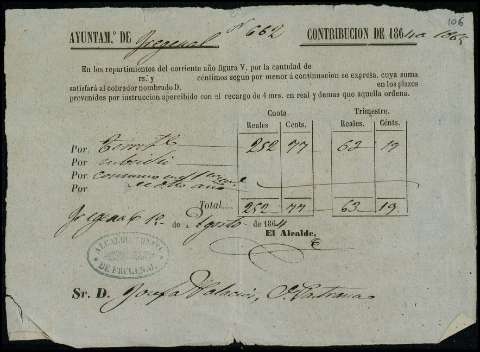 106
Nº 662
AYUNTAM.º DE Fregenal CONTRIBUCION DE 1864 a 1865
En los repartimientos del corriente año figura V. por la cantidad de
rs. y céntimos segun por menor á continuacion se espresa, cuya suma
satisfará al cobrador nombrado D. en los plazos
prevenidos por instruccion apercibido con el recargo de 4 mrs. en real y demas que aquella ordena.
Cuota Trimestre.
Reales Cénts. Reales. Cénts.
Por 252 77 63 19
Por subsidio
Por consumo
Por de este año
Total 252 77 63 19
Fregenal 12 de Agosto de 1864
El Alcalde,
ALCALDIA
DE FREGENAL
Sr. D. Josefa Palacin,